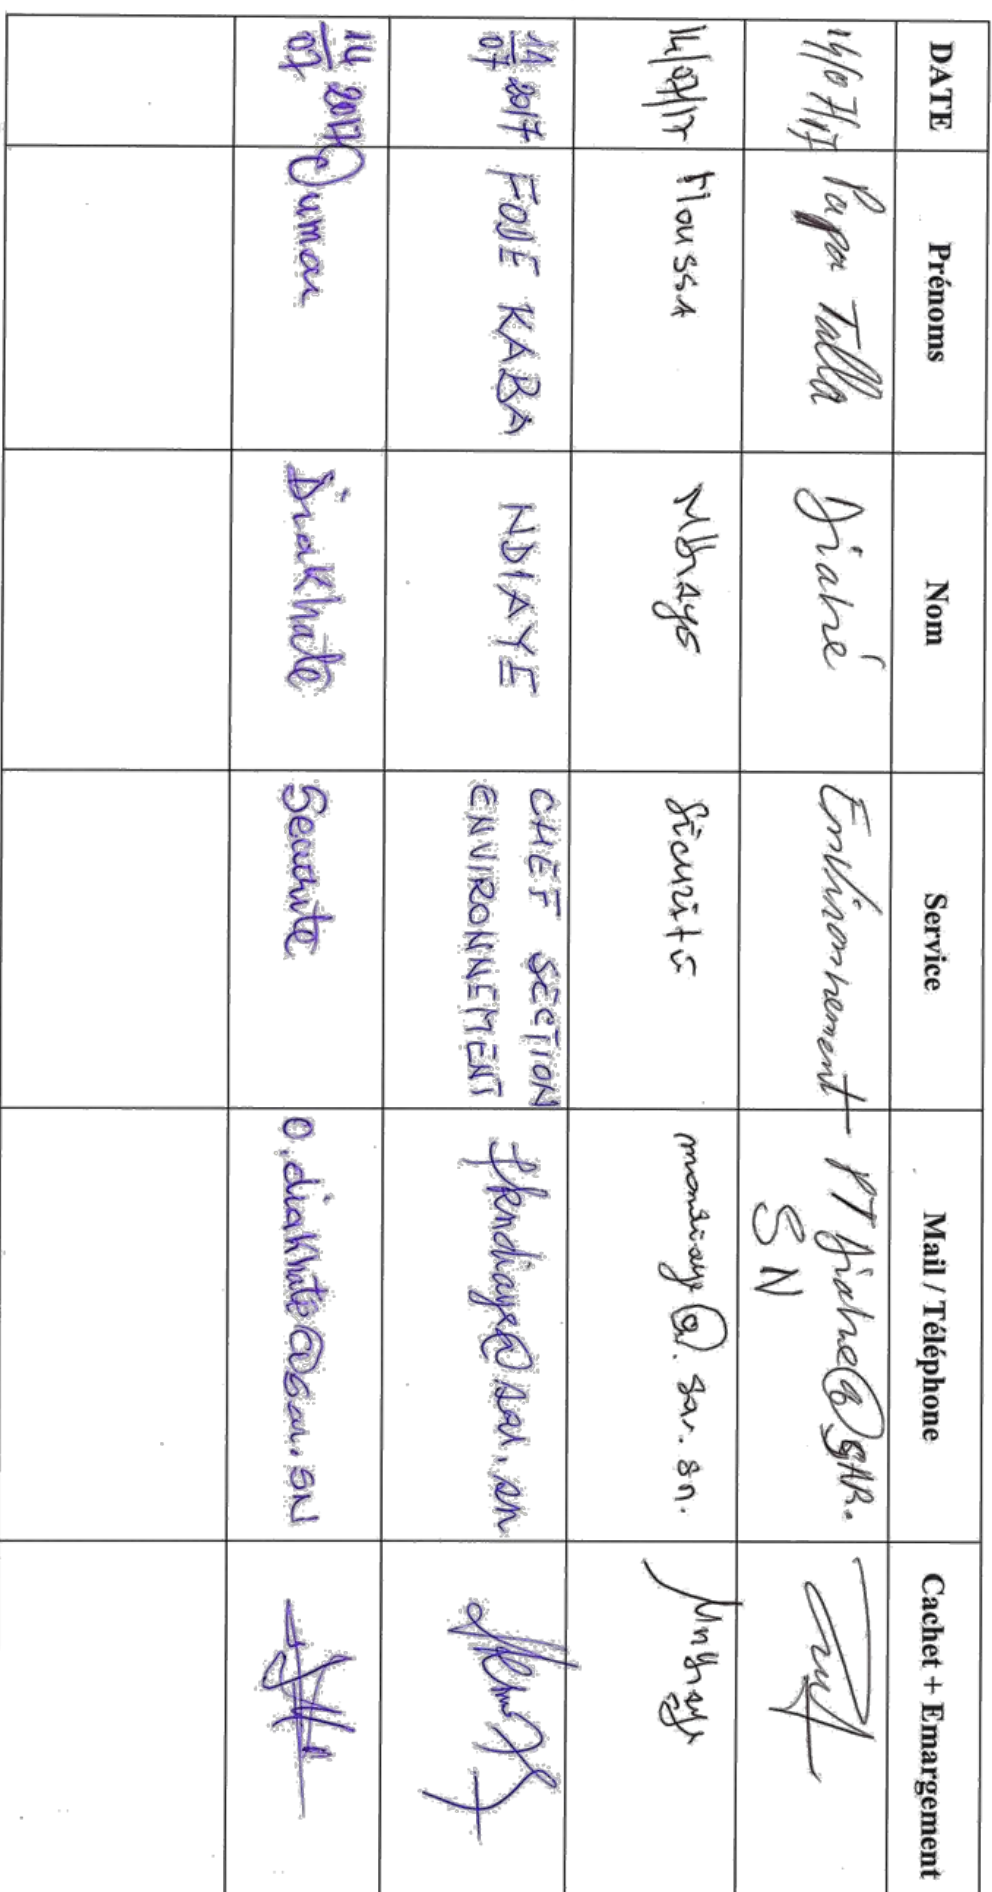 DATE Prénoms Nom Service Mail / Téléphone Cachet + Emargement
14/07/17 Papa Talla Diahé Environnement PTdiahe@SAR.
SN
14/07/17 Moussa Mbaye Sécurité
14/07 2017 FODE KABA NDIAYE CHEF SECTION
ENVIRONNEMENT fkndiaye@sar.sn
14/07 2017 Oumar Diakhate Securite o.diakhate@sar.SN